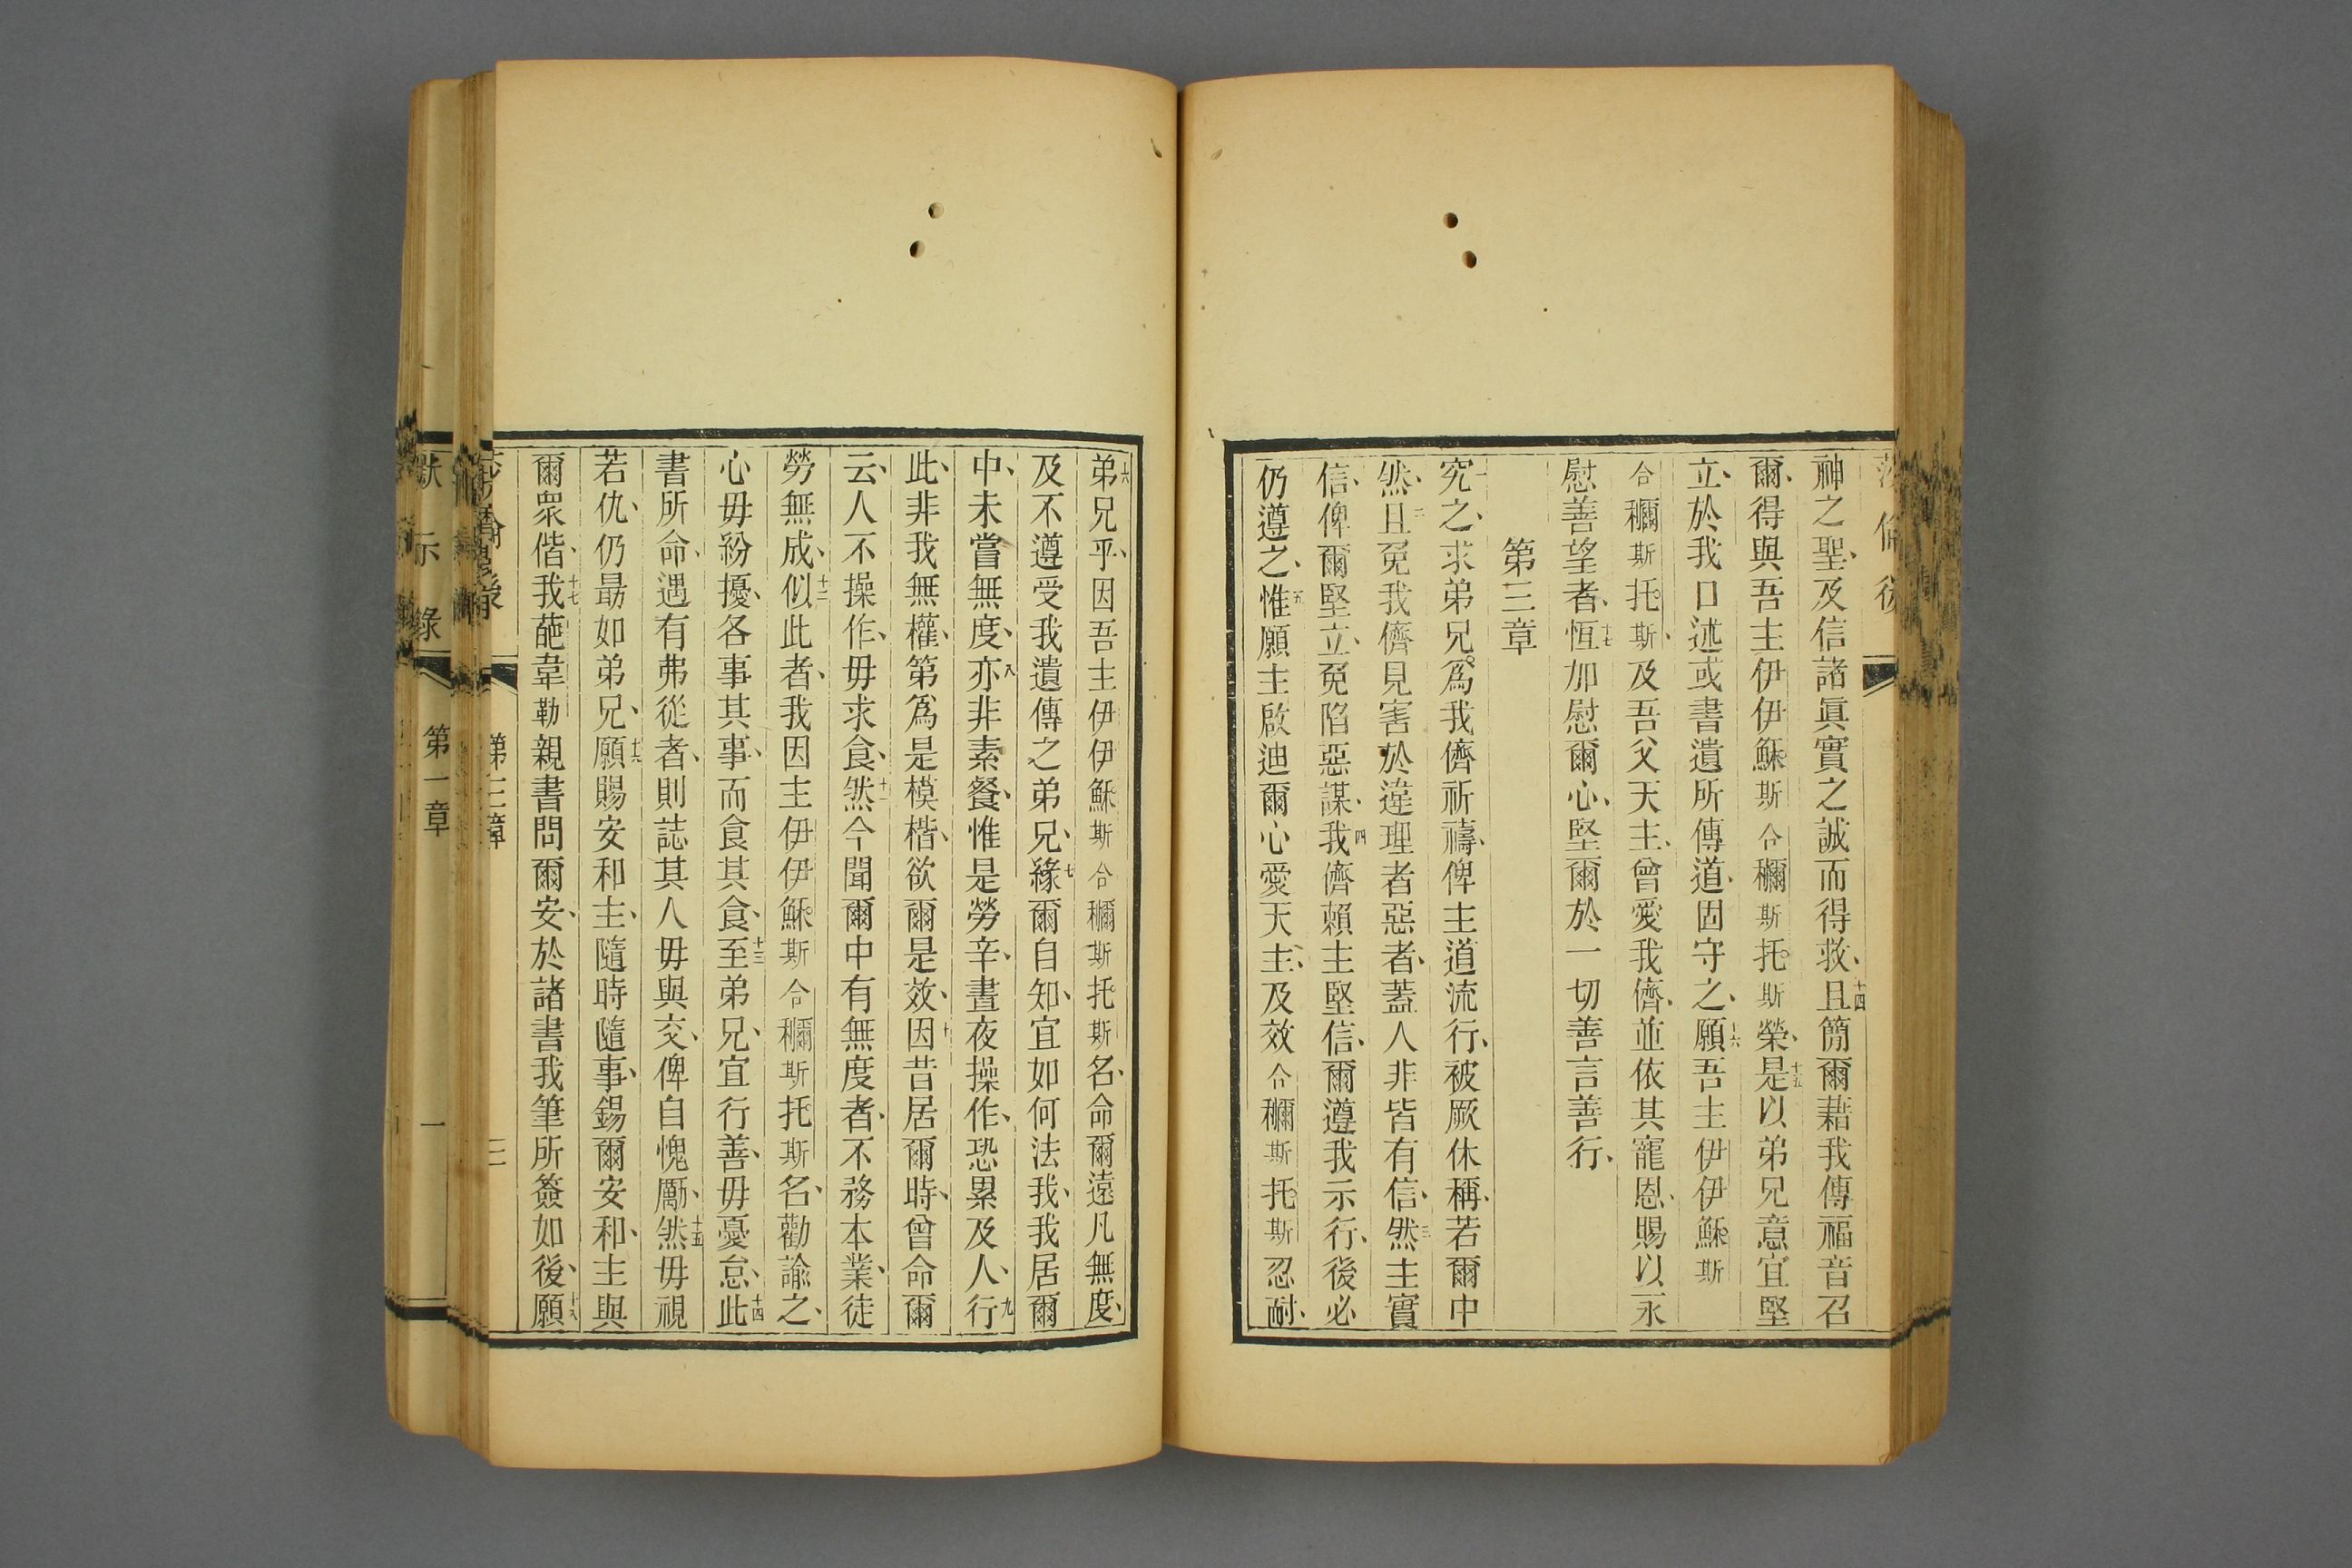 神之聖、及信諸眞實之誠而得救、十四且簡爾藉我傳福音召
爾、得與吾主伊伊穌斯合穪斯托斯榮、十五是以弟兄意宜堅
立、於我口述或書遺所傳道、固守之、十六願吾主伊伊穌斯
合穪斯托斯、及吾父天主、曾愛我儕、並依其寵恩、賜以永
慰善望者、十七恆加慰爾心、堅爾於一切善言善行、
第三章
一究之、求弟兄爲我儕祈禱、俾主道流行、被厥休稱、若爾中
然、二且免我儕見害於違理者惡者、蓋人非皆有信、三然主實
信、俾爾堅立、免陷惡謀、四我儕賴主堅信、爾遵我示行、後必
仍遵之、五惟願主啟迪爾心愛天主、及效合穪斯托斯忍耐、
六弟兄乎、因吾主伊伊穌斯合穪斯托斯名、命爾遠凡無度、
及不遵受我遺傳之弟兄、七緣爾自知、宜如何法我、我居爾
中、未嘗無度、八亦非素餐、惟是勞辛、晝夜操作、恐累及人、九行
此、非我無權、第爲是模楷、欲爾是效、十因昔居爾時、曾命爾
云、人不操作、毋求食、十一然今聞爾中有無度者、不務本業、徒
勞無成、十二似此者、我因主伊伊穌斯合穪斯托斯名、勸諭之、
心毋紛擾、各事其事、而食其食、十三至弟兄、宜行善、毋憂怠、十四此
書所命、遇有弗從者、則誌其人毋與交、俾自愧勵、十五然毋視
若仇、仍最如弟兄、十六願賜安和主、隨時隨事、錫爾安和、主與
爾眾偕、十七我葩韋勒親書問爾安、於諸書我筆所簽如後、十八願
第三章
三
默示錄
第一章
一